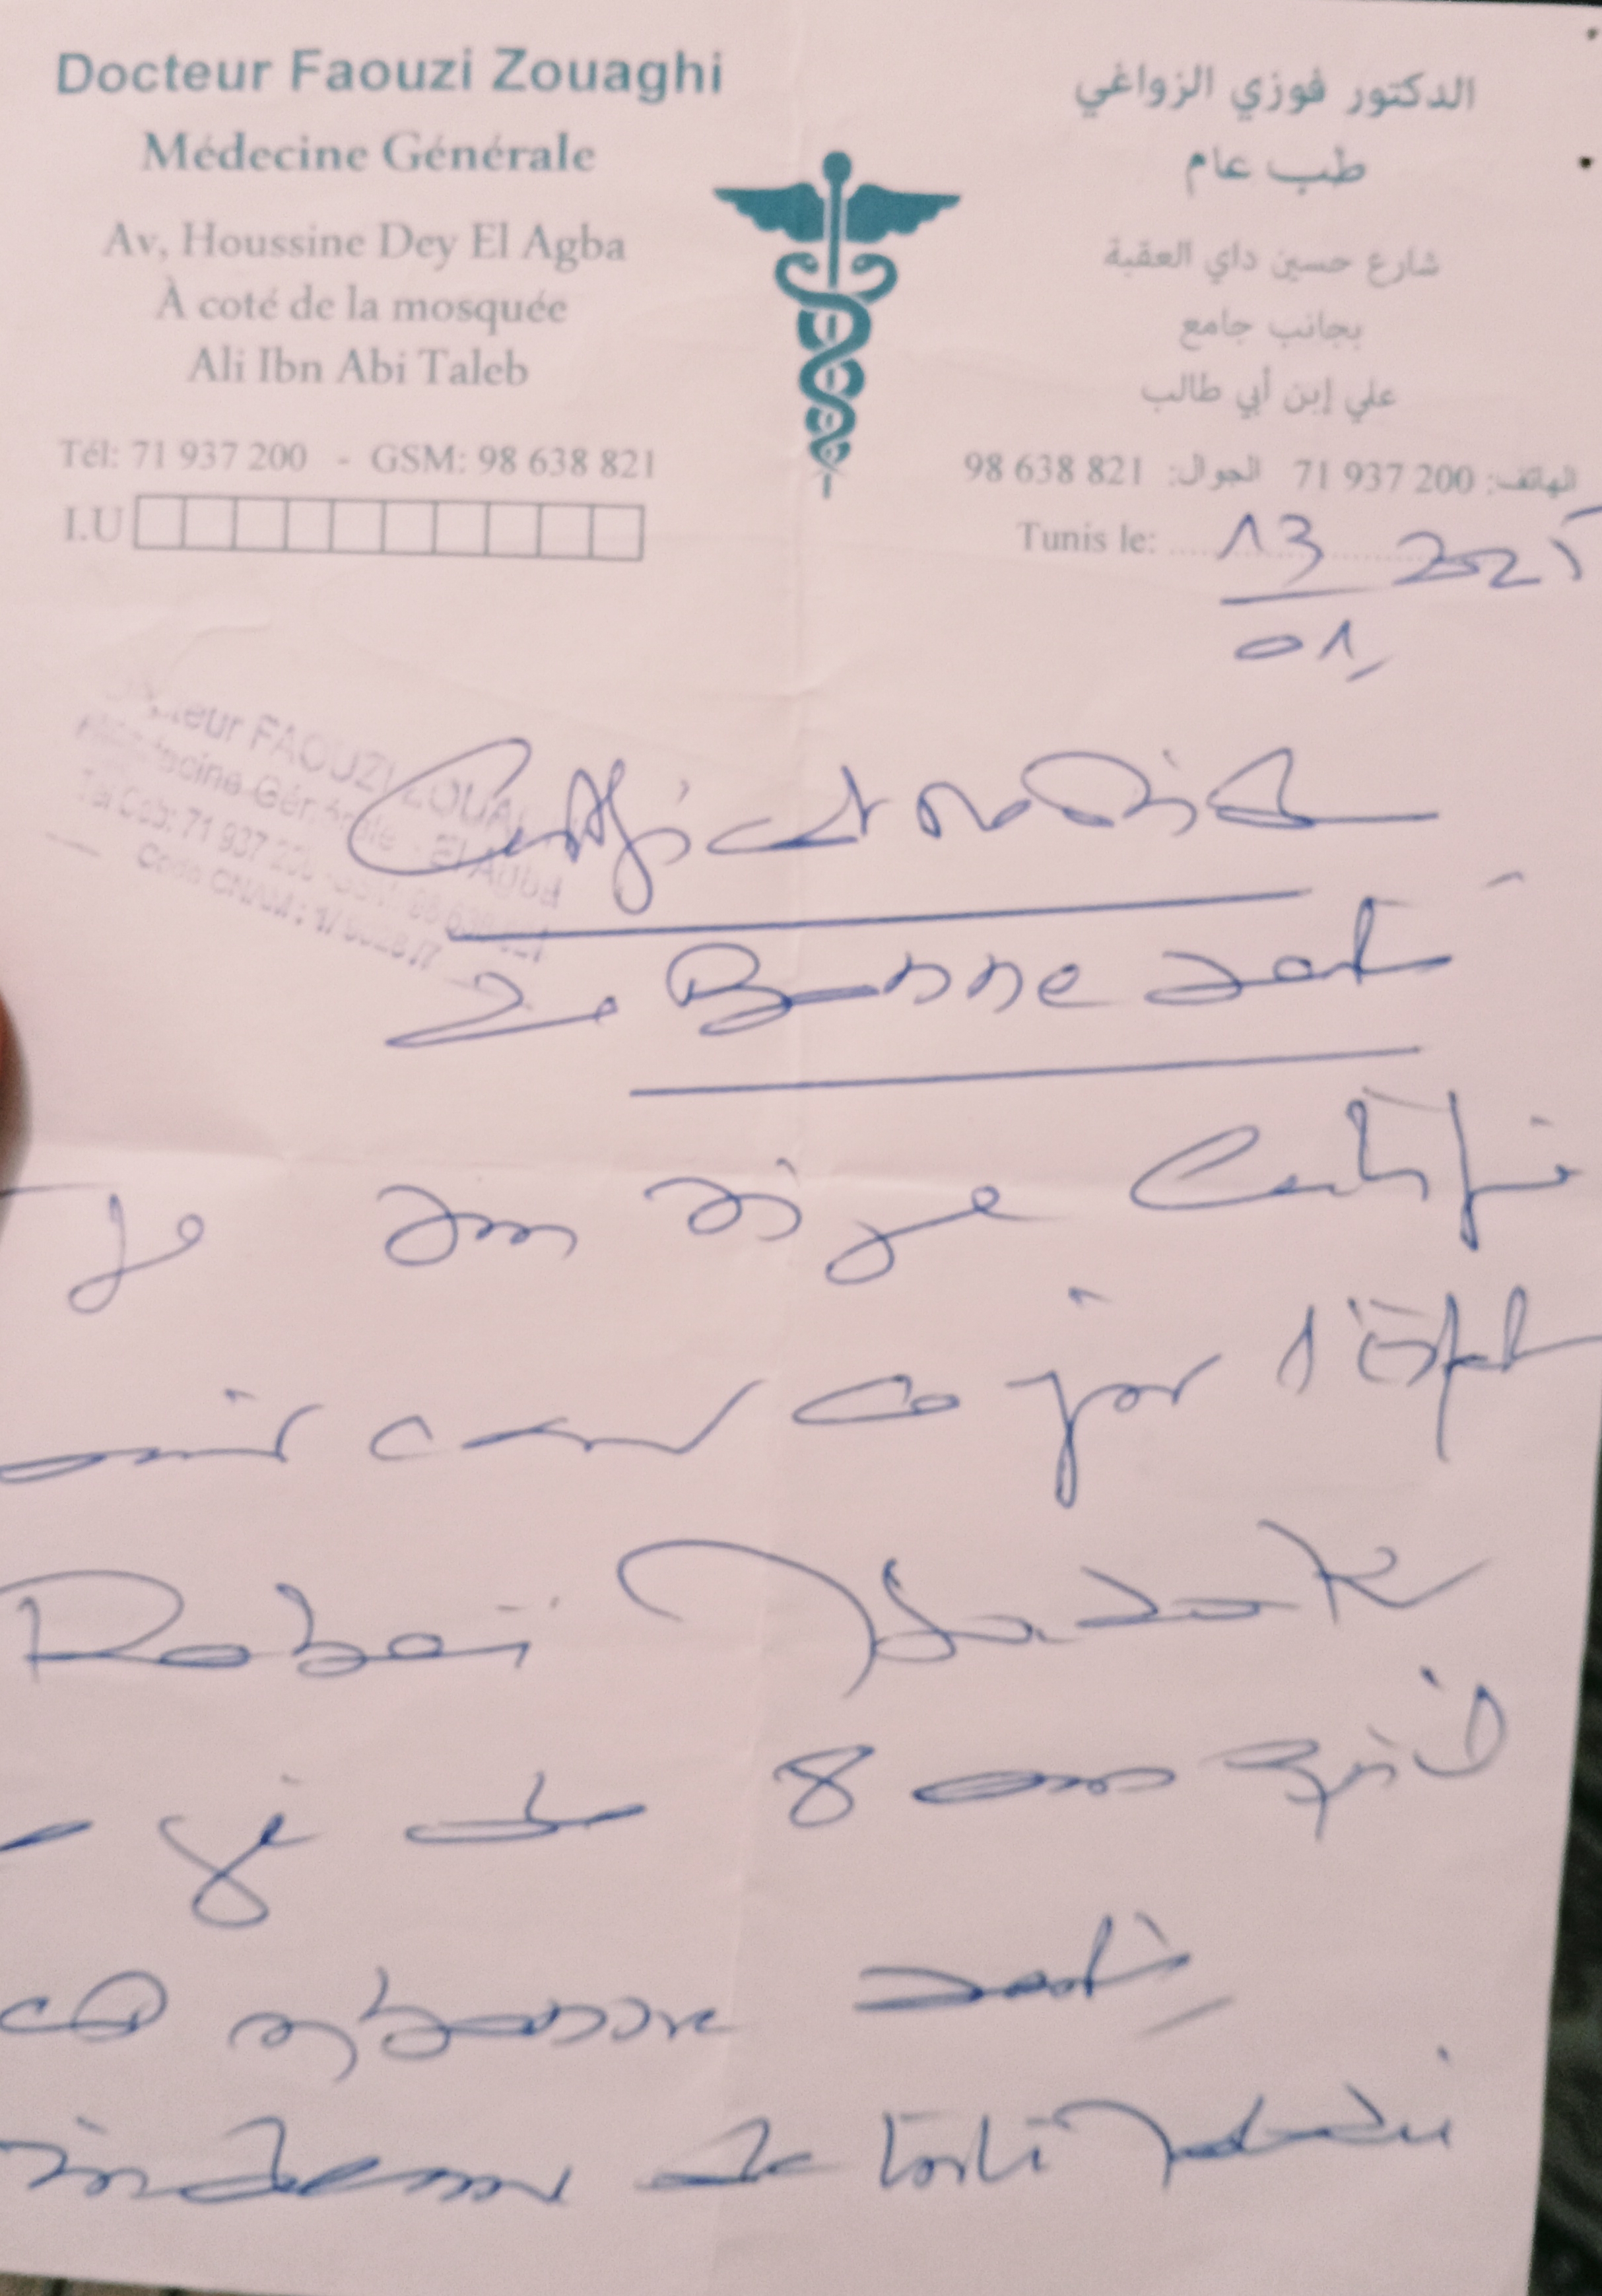 Docteur Faouzi Zouaghi
Médecine Générale
Av, Houssine Dey El Agba
À coté de la mosquée
Ali Ibn Abi Taleb
Tél: 71 937 200 - GSM: 98 638 821
I.U
الدكتور فوزي الزواغي
طب عام
شارع حسين داي العقبة
بجانب جامع
علي إبن أبي طالب
الهاتف: 200 937 71 الجوال: 821 638 98
Tunis le: 13 2025
01
Docteur FAOUZI ZOUAGHI
Médecine Générale - El Agba
Tél Cab: 71 937 200 - GSM: 98 638 821
Code CNAM: 1/
Certificat médical
de Bonne santé
Je soussigné certifie
avoir examiné ce jour l'
Rabaii
âgé de 8 ans qu'il
est en bonne santé
indemne de toute